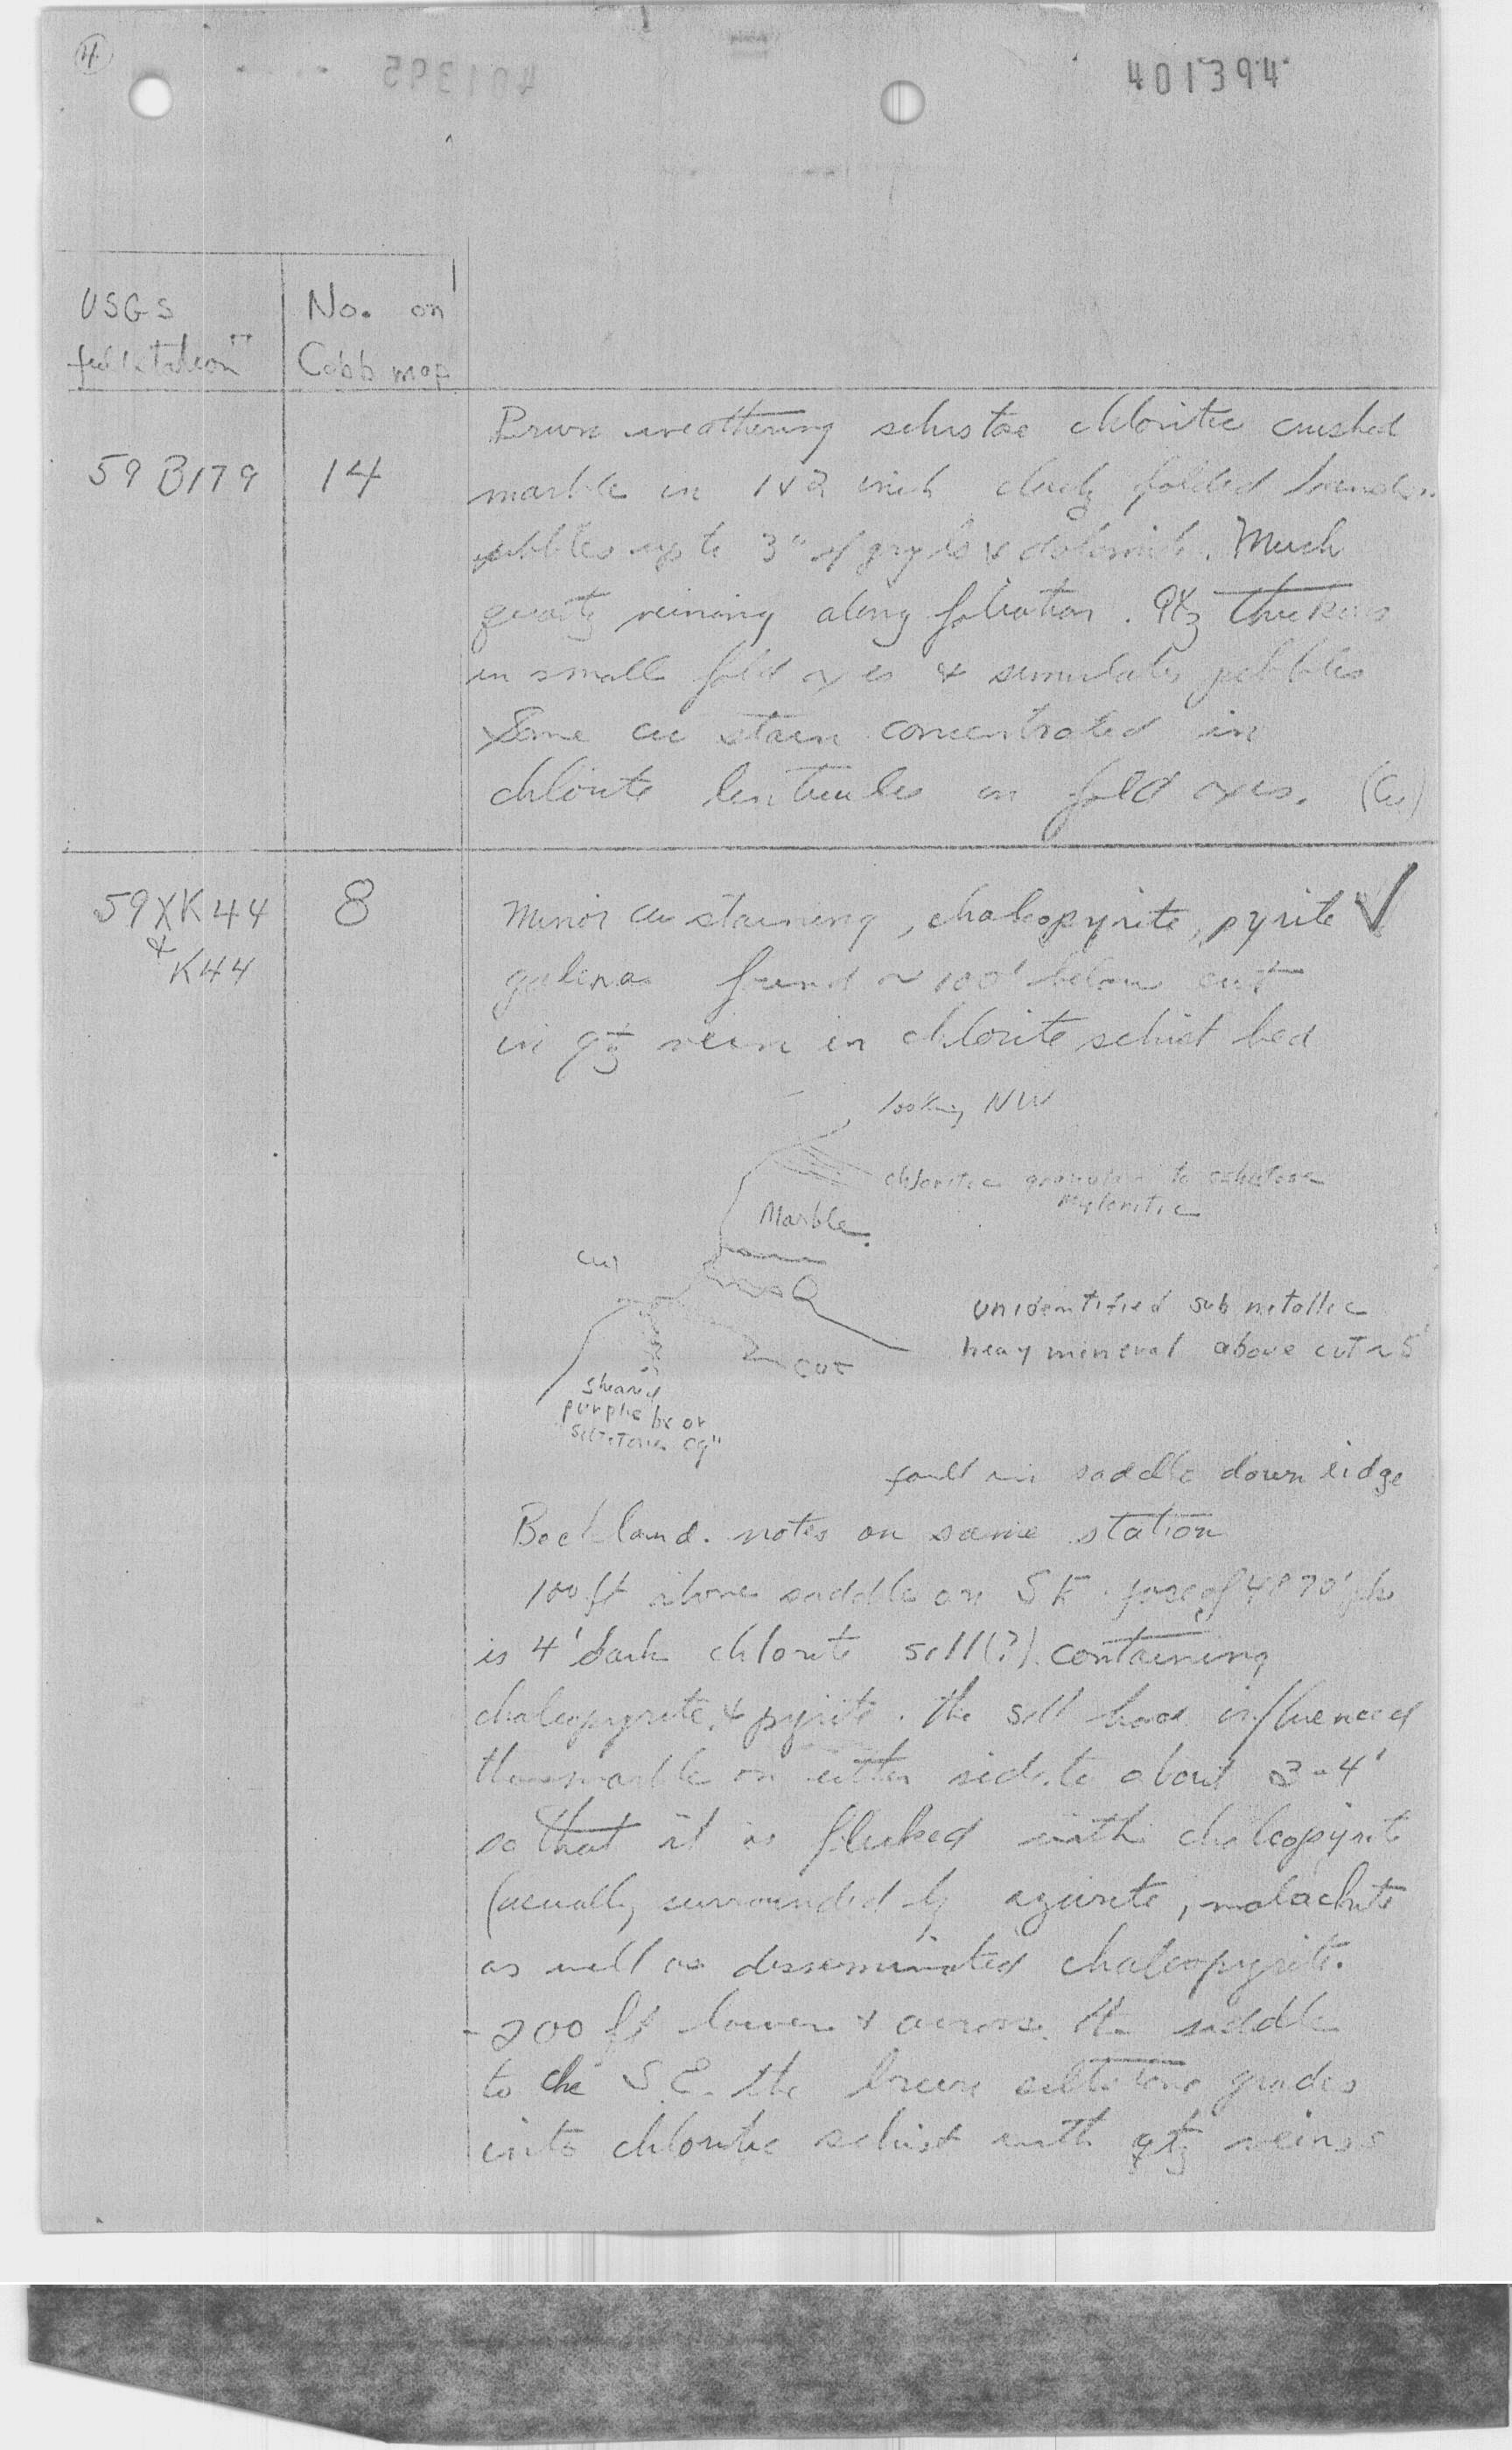 4
401392
401394
USGS
field station
No. on
Cobb map
59 B179
14
Brown weathering schistose chloritic crushed
marble in 1 & 2 inch folded
pebbles up to 3" of gry ls & dolomite. Much
quartz veining along foliation. Qtz thickens
in small fold axes & simulates pebbles
Some cu stain concentrated in
chlorite lenticules in fold axes. (Cu)
59XK44
& K44
8
Minor cu staining, chalcopyrite, pyrite ✓
galena found ~ 100' below cut
in qtz vein in chlorite schist bed
looking NW
chloritic to schistose
mylonitic
Marble
Cu
Q
cut
unidentified sub metallic
heavy mineral above cut ~ 5'
sheared
purple bx or
"siltstone cg"
fault in saddle down ridge
notes on same station
100 ft above saddle on SE face of 4870' pk
is 4' dark chlorite sill(?) containing
chalcopyrite & pyrite. The sill has influenced
the marble on either side to about 3-4'
so that it is flecked with chalcopyrite
(usually surrounded by azurite, malachite
as well as disseminated chalcopyrite.
- 200 ft lower & across the saddle
to the S.E. the siltstone grades
into chloritic schist with qtz veins